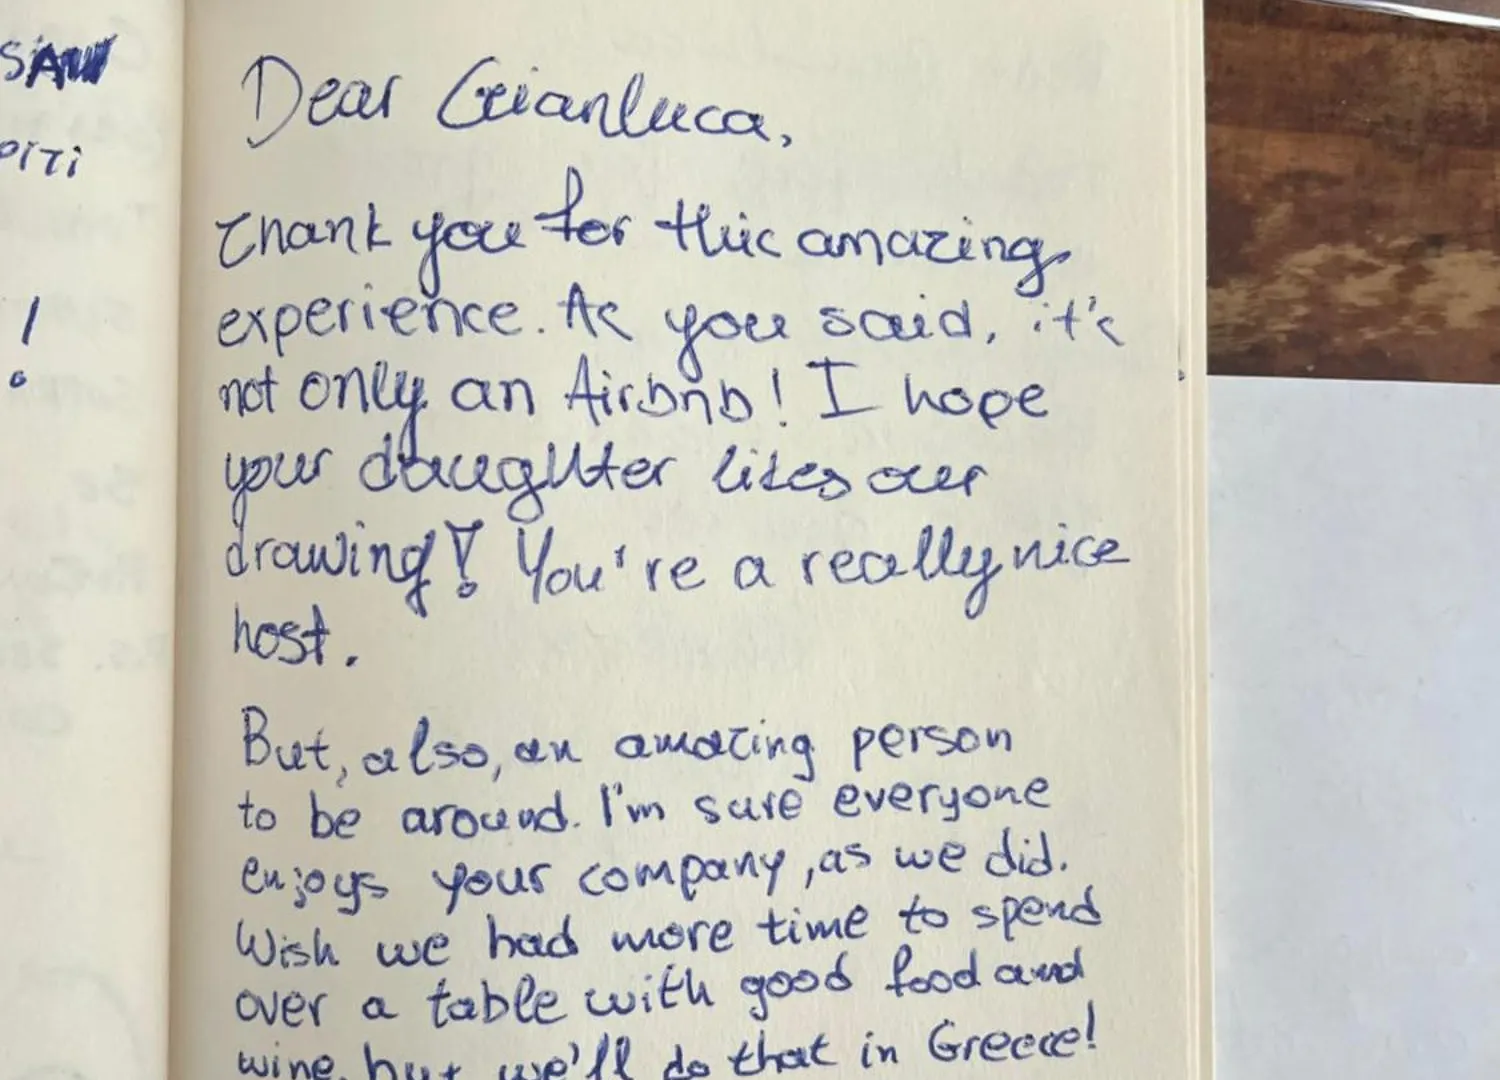 Dear Gianluca,
Thank you for this amazing
experience. As you said, it's
not only an Airbnb! I hope
your daughter likes our
drawing! You're a really nice
host.
But, also, an amazing person
to be around. I'm sure everyone
enjoys your company, as we did.
Wish we had more time to spend
over a table with good food and
wine, but we'll do that in Greece!